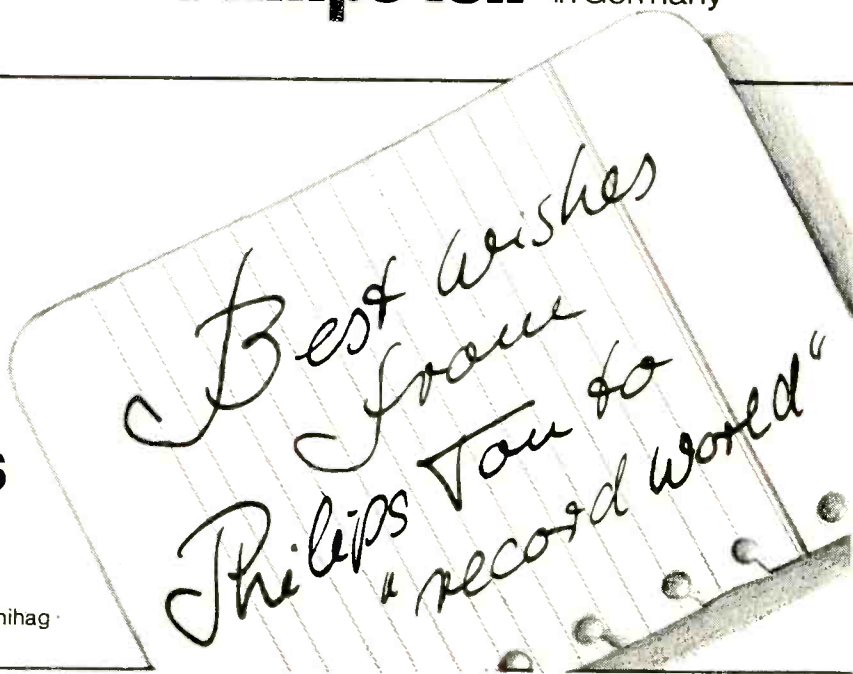 in Germany
Best wishes
from
Philips Ton to
"record world"